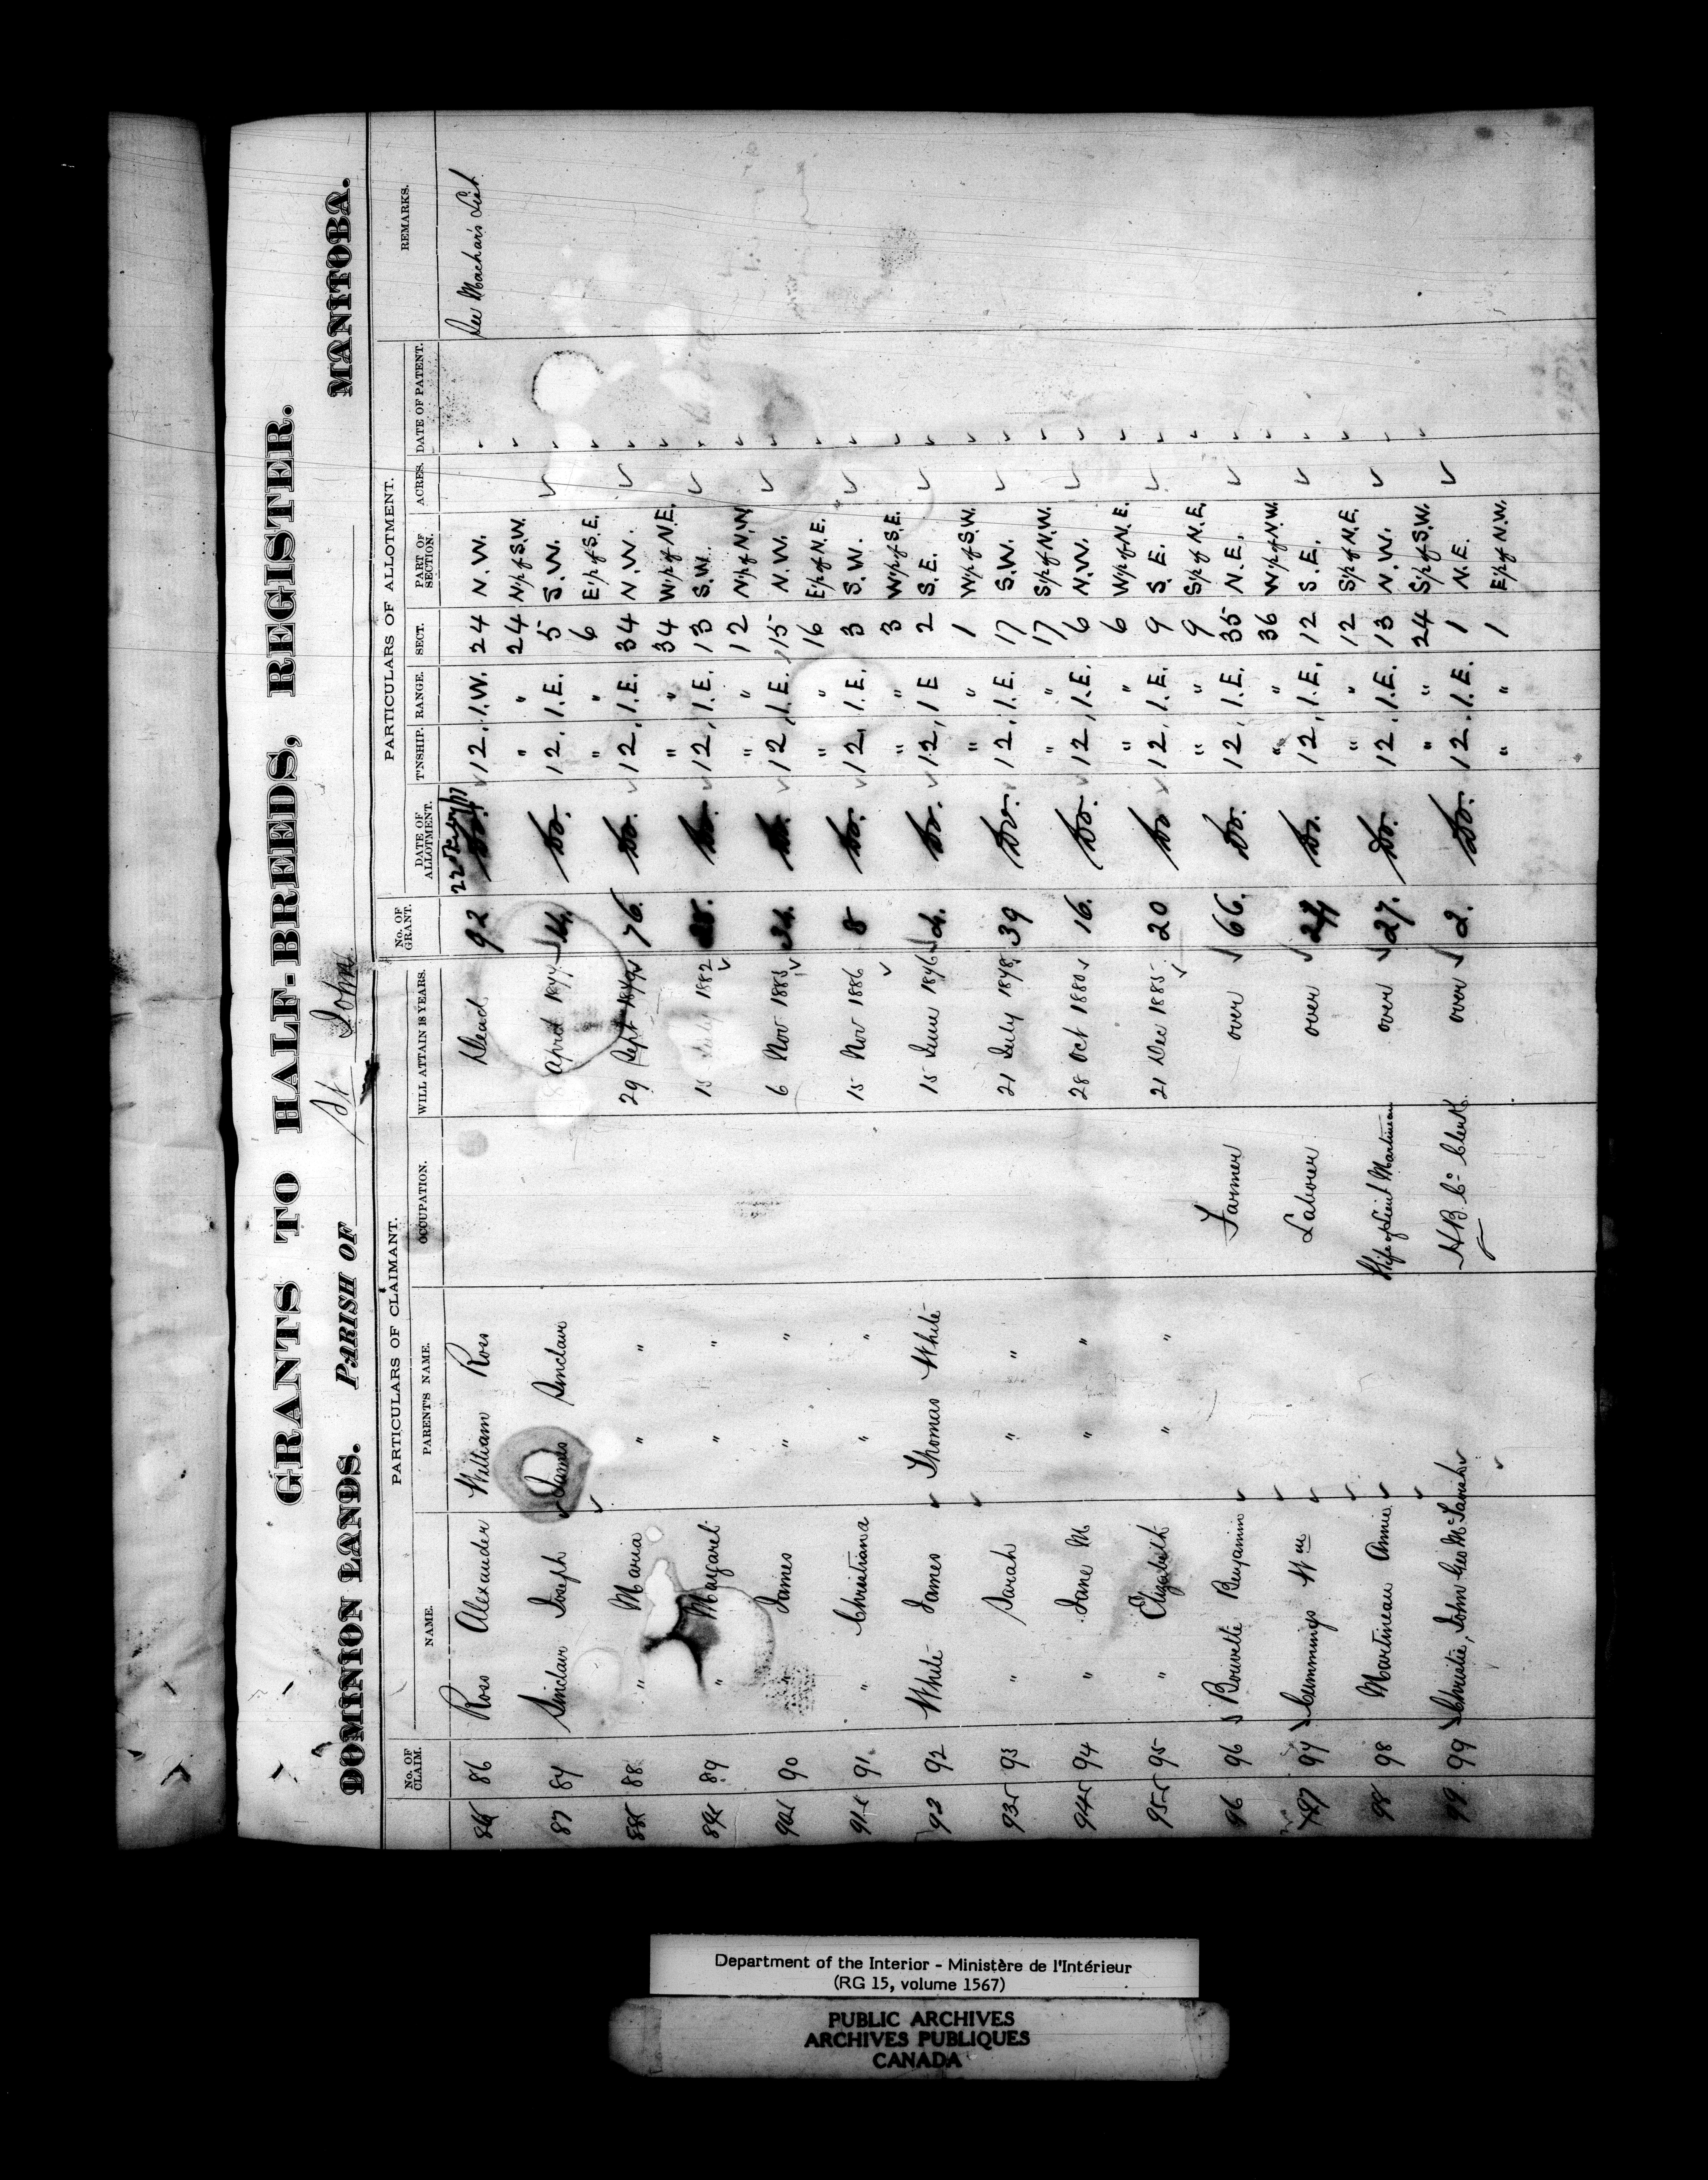 GRANTS TO HALF-BREEDS, REGISTER.
DOMINION LANDS. PARISH OF St John MANITOBA.
PARTICULARS OF CLAIMANT. PARTICULARS OF ALLOTMENT.
No. OF CLAIM. NAME. PARENT'S NAME. OCCUPATION. WILL ATTAIN 18 YEARS. No. OF GRANT. DATE OF ALLOTMENT. T'NSHIP. RANGE. SECT. PART OF SECTION. ACRES. DATE OF PATENT. REMARKS.
86 86 Ross Alexander William Ross Dead 92 Do. 12. 1.W. 24 N.W. See Machar's List
" " 24 N/2 of S.W.
87 87 Sinclair Joseph James Sinclair April 1877 Do. 12. 1.E. 5 S.W.
" " 6 E/2 of S.E.
88 88 " Maria " " 29 Sept 1879 76. Do. 12. 1.E. 34 N.W.
" " 34 W/2 of N.E.
89 89 " Margaret " " 15 July 1882 Do. 12. 1.E. 13 S.W.
" " 12 N/2 of N.W.
90 90 James " " 6 Nov 1883 Do. 12. 1.E. 15 N.W.
" " 16 E/2 of N.E.
91 91 " Christiana " " 15 Nov 1886 8 Do. 12. 1.E. 3 S.W.
" " 3 W/2 of S.E.
93 92 White James Thomas White 15 June 1876 Do. 12. 1.E 2 S.E.
" " 1 W/2 of S.W.
93 93 " Sarah " " 21 July 1878 39 Do. 12. 1.E. 17 S.W.
" " 17 S/2 of N.W.
94 94 " Jane M " " 28 Oct 1880 16. Do. 12. 1.E. 6 N.W.
" " 6 W/2 of N.E.
95 95 " Elizabeth " " 21 Dec 1885 20 Do 12. 1.E. 9 S.E.
" " 9 S/2 of N.E.
96 96 Bouvette Benjamin Farmer over 66. Do. 12. 1.E. 35 N.E.
" " 36 W/2 of N.W.
97 97 Cummings Wm Laborer over Do. 12. 1.E. 12 S.E.
" " 12 S/2 of N.E.
98 98 Martineau Annie Wife of Lieut Martineau over 27. Do. 12. 1.E. 13 N.W.
" " 24 S/2 of S.W.
99 99 Christie, John Geo McTavish H.B. Co Clerk over 2. Do. 12. 1.E. 1 N.E.
" " 1 E/2 of N.W.
Department of the Interior - Ministère de l'Intérieur
(RG 15, volume 1567)
PUBLIC ARCHIVES
ARCHIVES PUBLIQUES
CANADA